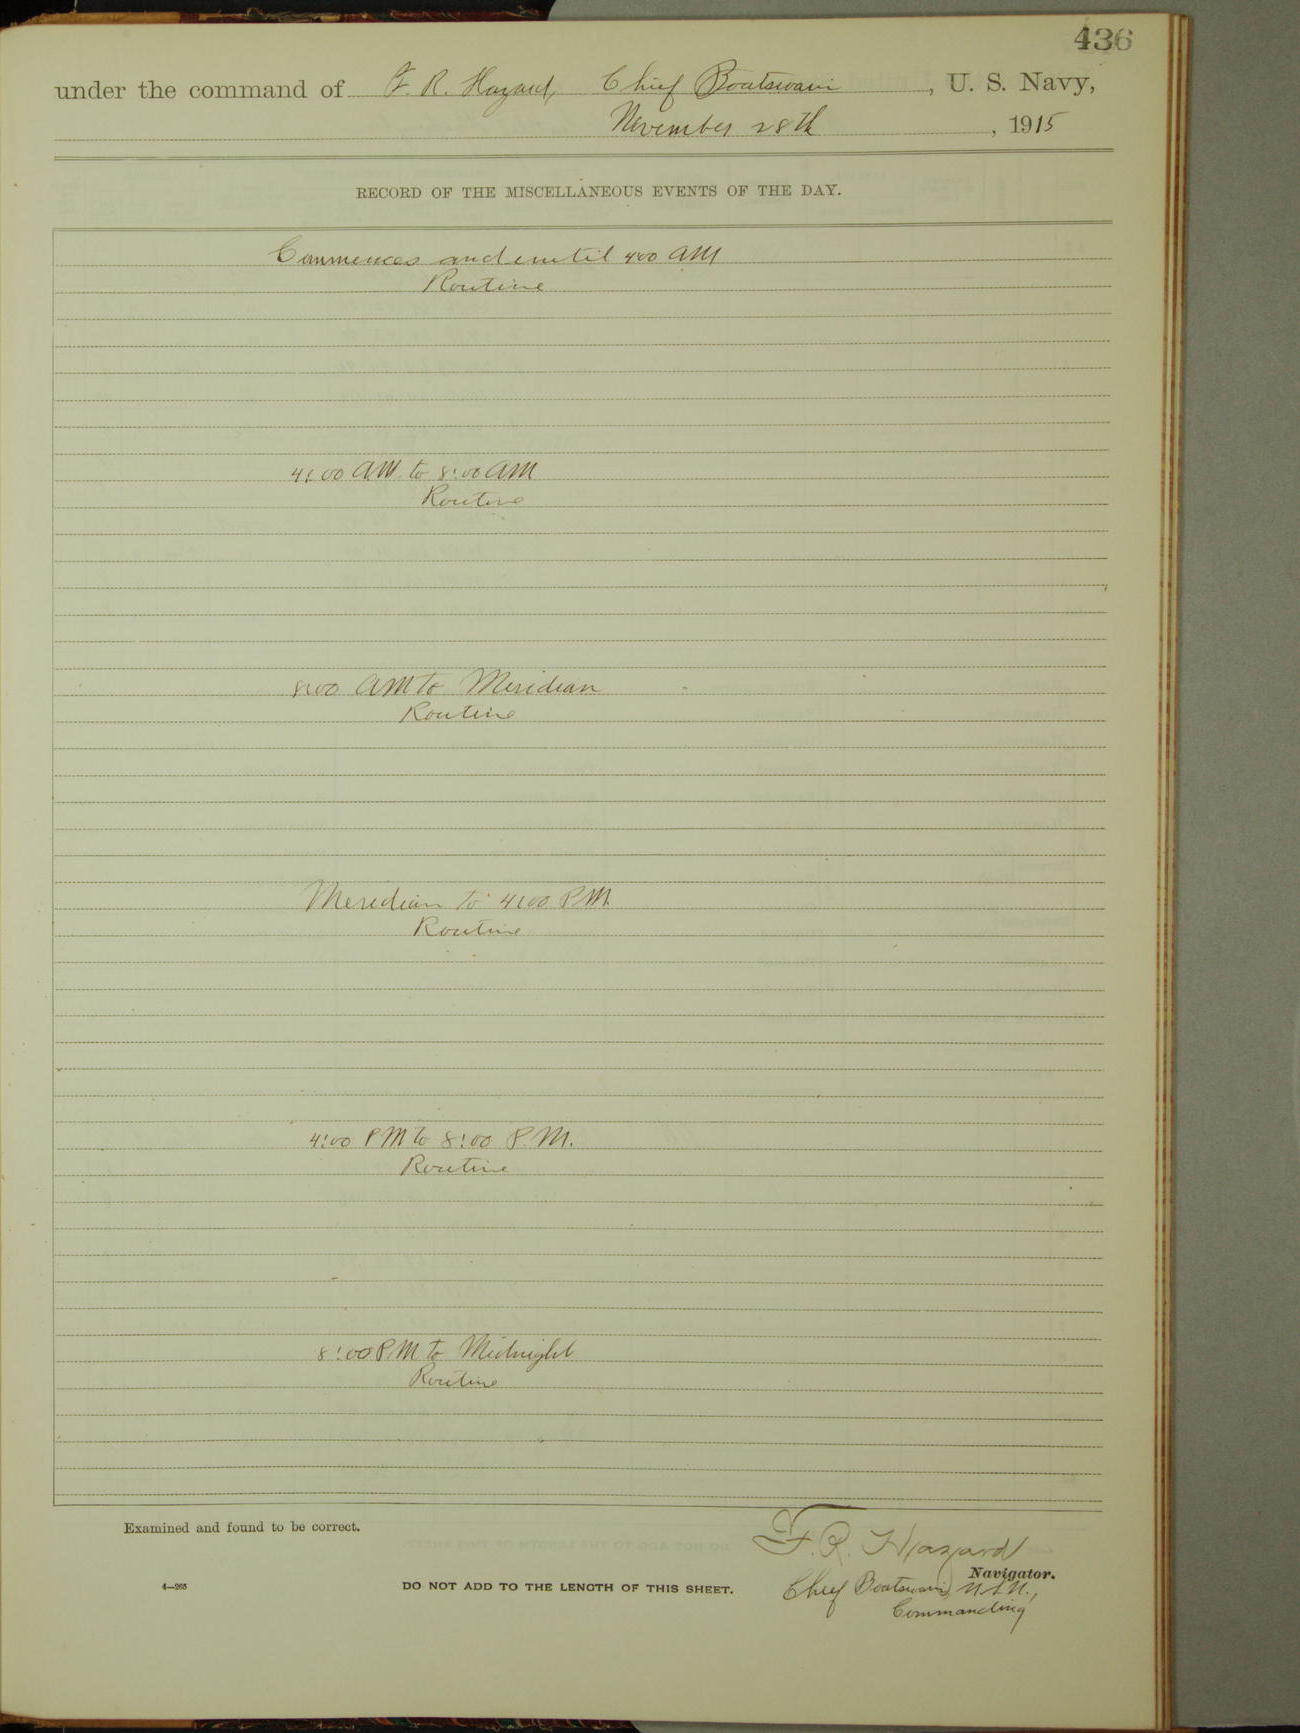 436
under the command of F. R. Hazard, Chief Boatswain, U. S. Navy,
November 28th, 1915
RECORD OF THE MISCELLANEOUS EVENTS OF THE DAY.
Commences and until 4:00 AM
Routine
4:00 AM to 8:00 AM
Routine
8:00 AM to Meridian
Routine
Meridian to 4:00 P.M.
Routine
4:00 PM to 8:00 P.M.
Routine
8:00 PM to Midnight
Routine
Examined and found to be correct.
F. R. Hazard
Navigator.
4—265
DO NOT ADD TO THE LENGTH OF THIS SHEET.
Chief Boatswain, U.S.N.,
Commanding